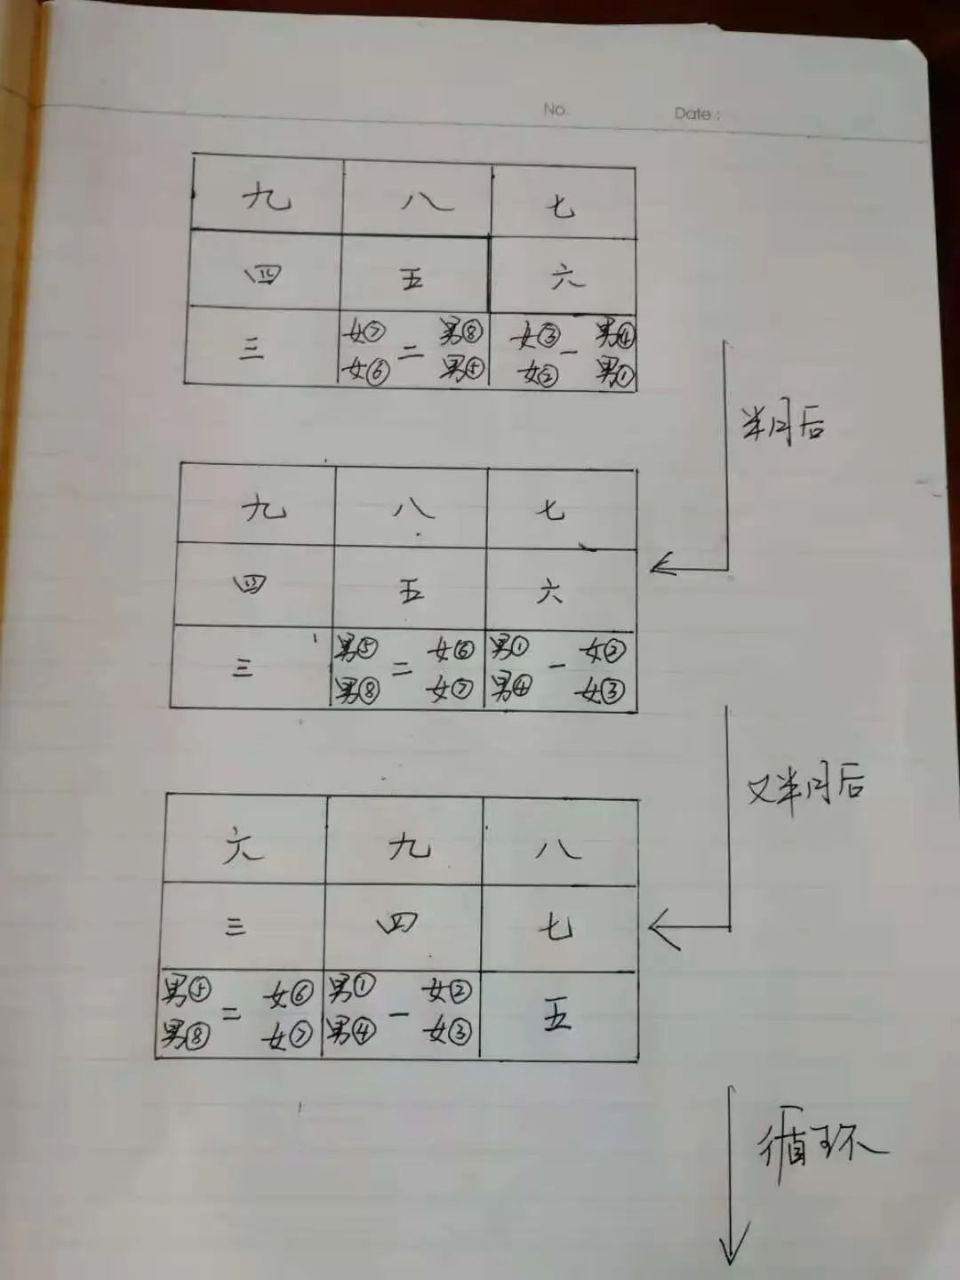 No. Date:
九 八 七
四 五 六
三 女⑦ 二 男⑧ 女③ 一 男④
女⑥ 男⑤ 女② 男①
半月后
九 八 七
四 五 六
三 男⑤ 二 女⑥ 男① 一 女②
男⑧ 女⑦ 男④ 女③
又半月后
六 九 八
三 四 七
男⑤ 二 女⑥ 男① 一 女② 五
男⑧ 女⑦ 男④ 女③
循环